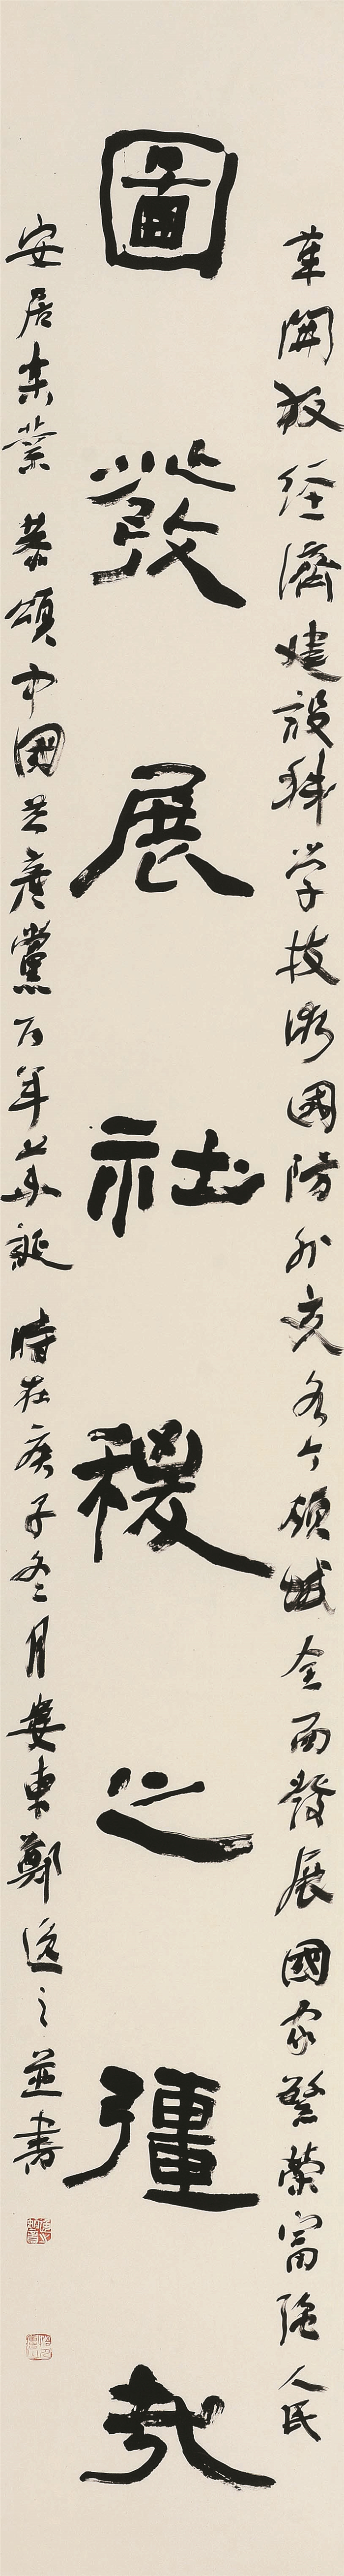 革開放經濟建設科学技術國防外交各个領域全面發展國家繁榮富强人民
圖發展社稷之彊哉
安居樂業 恭頌中國共產黨百年華誕 時在庚子冬月婁東鄭之並書